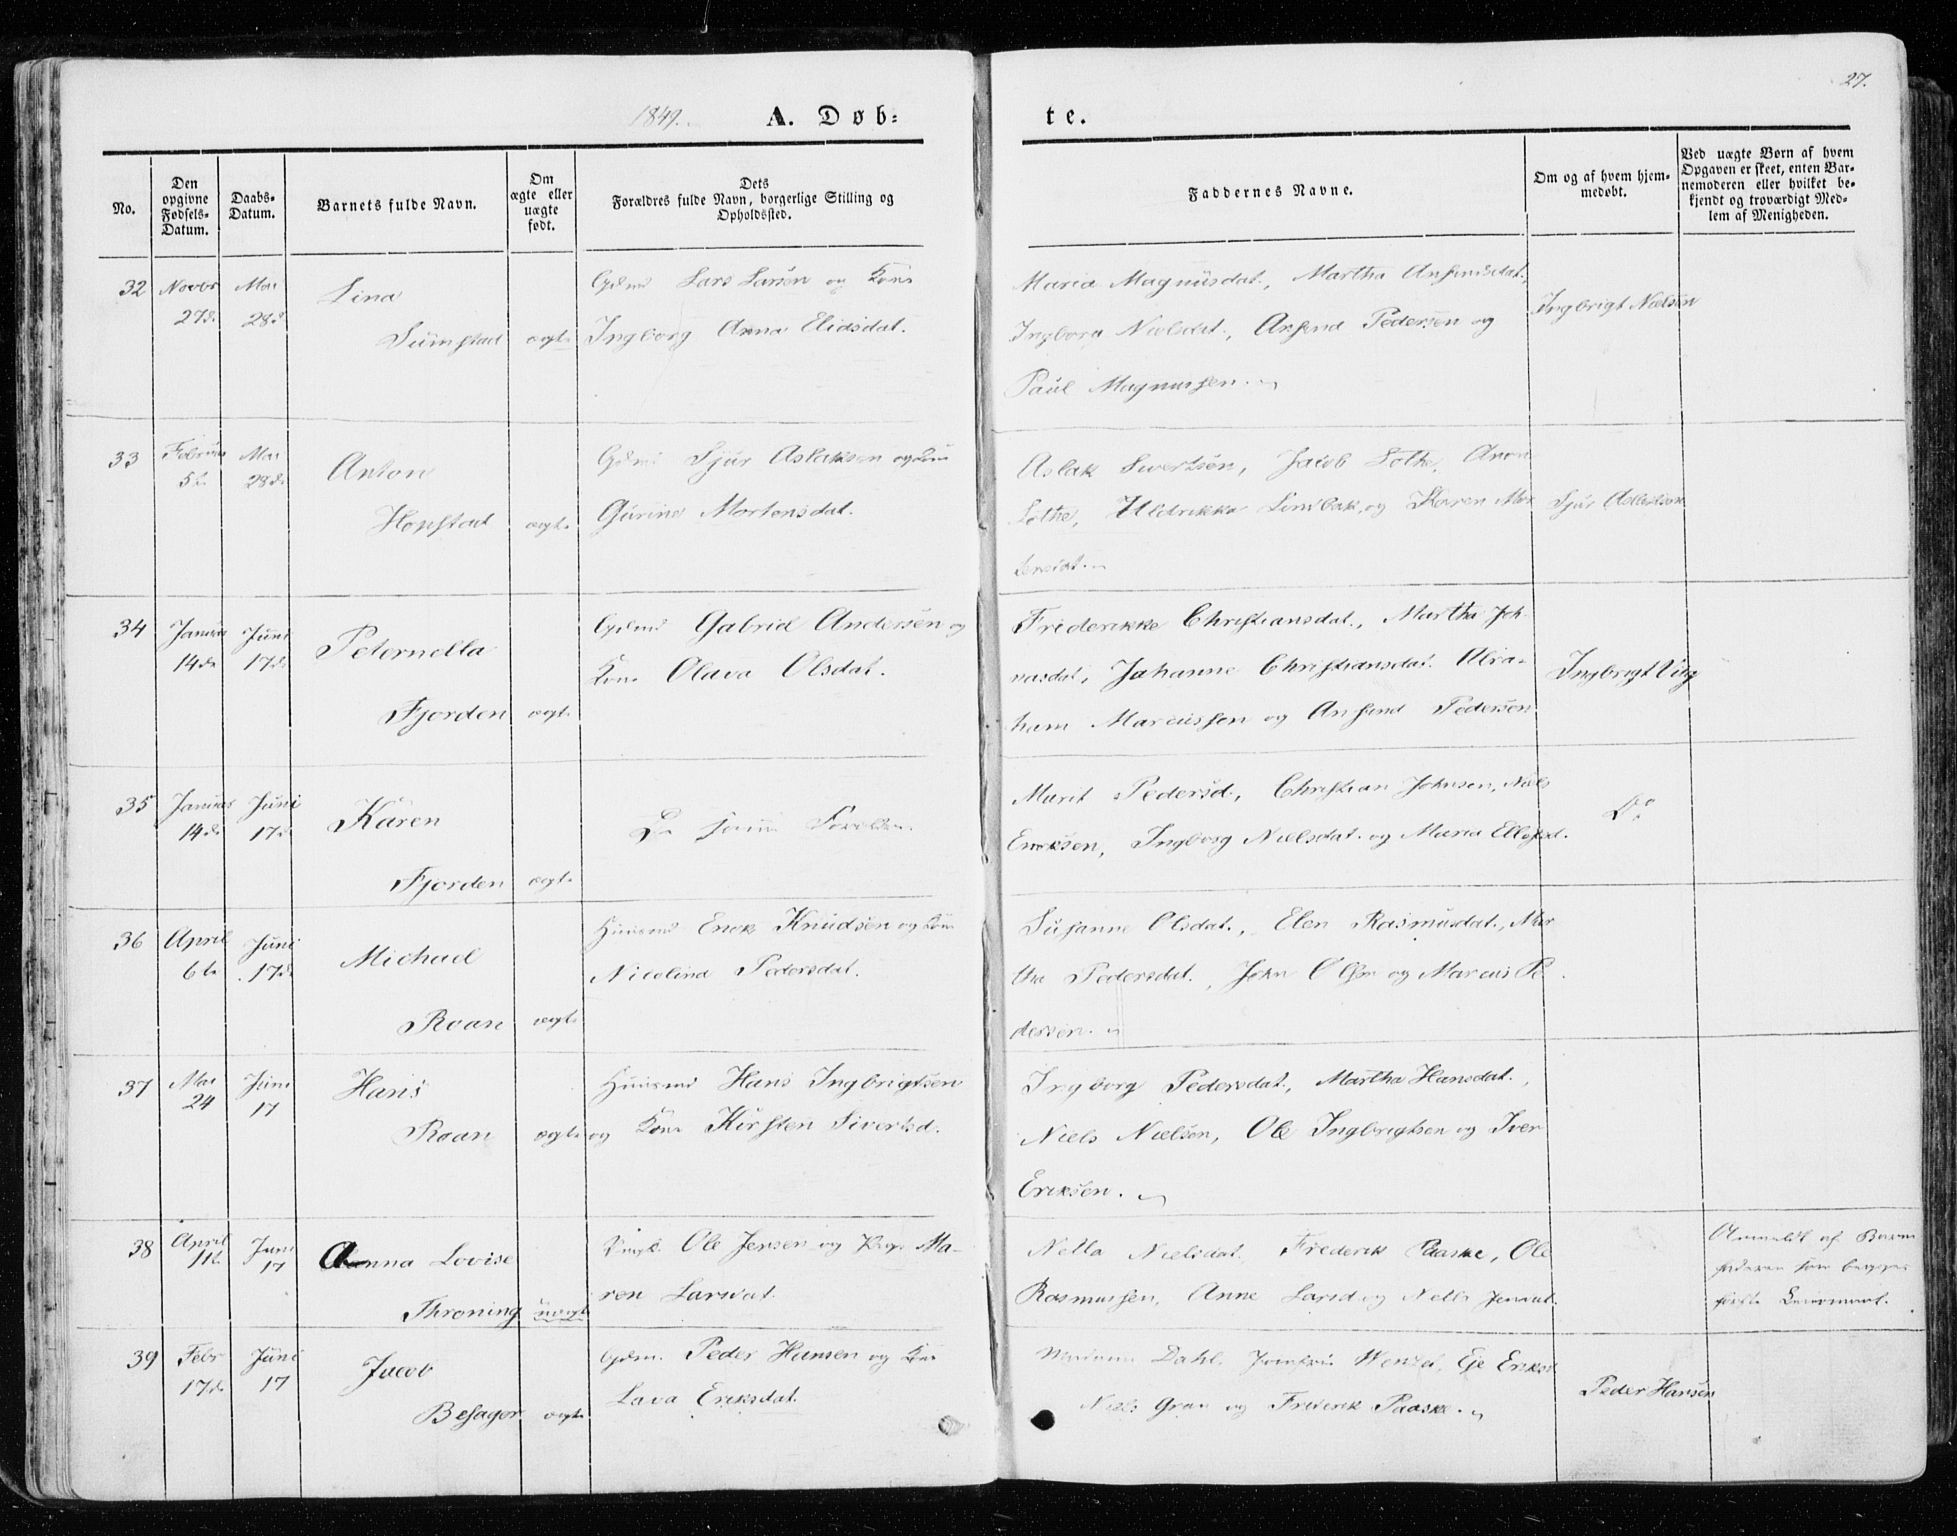 1849.
A. Døb=
te.
27.
No.
Den opgivne Fødsels-Datum.
Daabs-Datum.
Barnets fulde Navn.
Om ægte eller uægte født.
Dets Forældres fulde Navn, borgerlige Stilling og Opholdssted.
Faddernes Navne.
Om og af hvem hjemmedøbt.
Ved uægte Børn af hvem Opgaven er skeet, enten Barnemoderen eller hvilket bekjendt og troværdigt Medlem af Menigheden.
32 Novbr 27de Mai 28de
Lina
Sumstad ægte
Gdmd Lars Larsen og Kone
Ingborg Anna Elidsdat.
Maria Magnusdat., Martha Anfindsdat.,
Ingborg Nielsdat., Anfind Pedersen og
Paul Magnussen.
Ingbrigt Nielsen
33 Februar 5te Mai 28de
Anton
Hopstad ægte
Gdmd Sjur Aslaksen og Kone
Gurine Mortensdat.
Aslak Sivertsen, Jacob Lothe, Anna
Lothe, Uldrikke Lindbak, og Karen Mor
tensdat.
Sjur Aslaksen
34 Januar 14de Juni 17de
Peternella
Fjorden ægte
Gdmd Gabriel Andersen og
Kone Olava Olsdat.
Frederikke Christiansdat., Martha Joh-
nasdat, Johanne Christiansdat. Abra-
ham Marcussen og Anfind Pedersen
Ingbrigt Viig
35 Januar 14de Juni 17de
Karen
Fjorden ægte
De samme Forældre.
Marit Pedersd., Christian Johnsen, Niels
Eriksen, Ingborg Nielsdat. og Maria Ellefsd.
Do
36 April 6te Juni 17de
Michael
Roan ægte
Huusmd Erick Knudsen og Kone
Nicolina Pedersdat.
Susanne Olsdat., Elen Rasmusdat., Mar
tha Pedersdat., John Olsen og Marcus Pe
dersen.
37 Mai 24 Juni 17
Hans
Roan ægte
Huusmd Hans Ingbrigtsen
og Kone Kirsten Sivertsd.
Ingborg Pedersdat., Martha Hansdat.,
Niels Nielsen, Ole Ingbrigtsen og Iver
Eriksen.
38 April 11te Juni 17
Anna Lovise
Throning uægte
Ungk. Ole Jensen og Pige Ma-
ren Larsdat.
Nella Nielsdat. Frederik Paaske, Ole
Rasmussen, Anne Larsd og Nella Jensdat.
Anmeldt af Barne
faderen som begges
første Leiermaal.
39 Febr 17de Juni 17
Jacob
Besager ægte
Gdm. Peder Hansen og Kone
Lava Eriksdat.
Mariane Dahl, Jomfru Wenzel, Eje Eriksd
Niels Gran og Frederik Paaske.
Peder Hansen